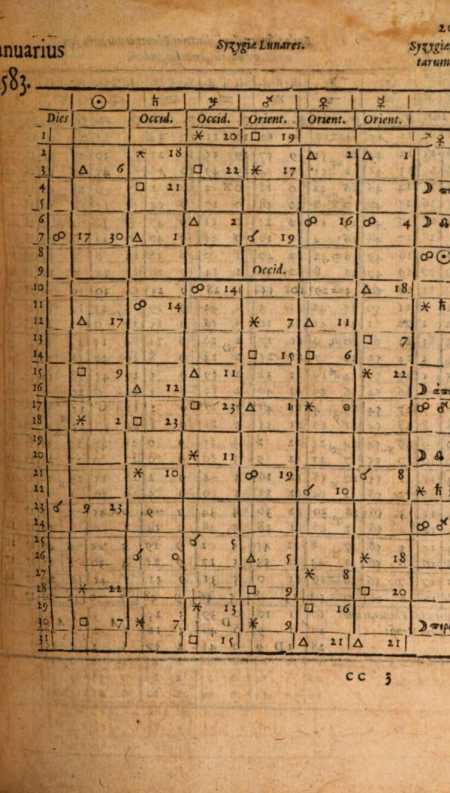 20
anuarius Syzygiæ Lunares. Syzygiæ
tarum
583.
☉ ♄ ♃ ♂ ♀ ☿
Dies Occid. Occid. Orient. Orient. Orient.
1 ⚹ 20 □ 19
2 ⚹ 18 △ 2 △ 1
3 △ 6 □ 22 ⚹ 17
4 □ 21 ☽
5
6 △ 2 ☍ 16 ☍ 4 ☽ ☊
7 ☍ 17 30 △ 1 ☌ 19
8 ☍ ☉
9 Occid.
10 ☍ 14 △ 18
11 ☍ 14 ⚹ ♄
12 △ 17 ⚹ 7 △ 11
13 □ 7
14 □ 15 □ 6
15 □ 9 △ 11 ⚹ 22
16 △ 12 ☽
17 □ 23 △ 1 ⚹ 0 ☍ ♂
18 ⚹ 2 □ 23
19
20 ⚹ 11 ☽ ☊
21 ⚹ 10 ☍ 19 ☌ 8
22 ☌ 10 ⚹ ♄
23 ☌ 9 23
24 ☍ ♂
25 ☌ 5
26 ☌ 0 △ 5 ⚹ 18
27 ⚹ 8
28 ⚹ 22 □ 9 □ 20
29 ⚹ 13 □ 16
30 □ 17 ⚹ 7 ⚹ 9 ☽
31 □ 15 △ 21 △ 21
cc 3